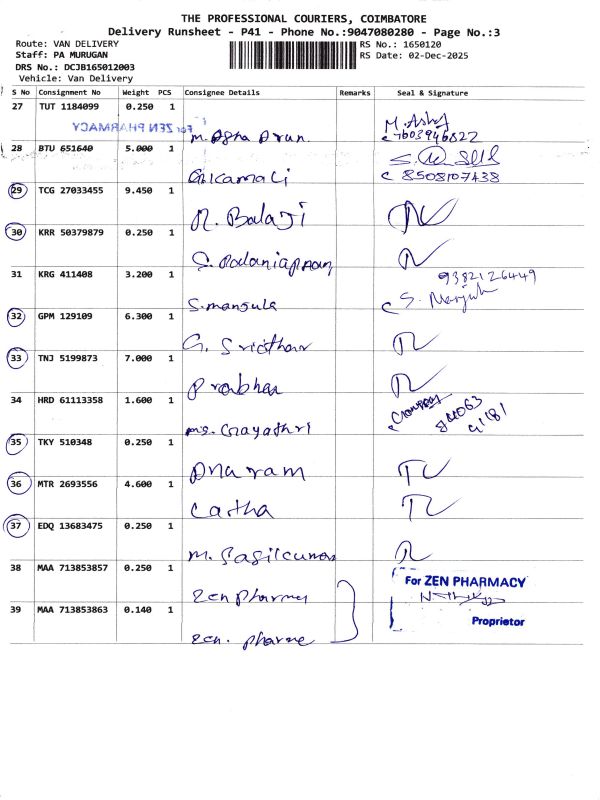 THE PROFESSIONAL COURIERS, COIMBATORE
Delivery Runsheet - P41 - Phone No.:9047080280 - Page No.:3
Route: VAN DELIVERY
RS No.: 1650120
Staff: PA MURUGAN
RS Date: 02-Dec-2025
DRS No.: DCJB165012003
Vehicle: Van Delivery
S No Consignment No Weight PCS Consignee Details Remarks Seal & Signature
27 TUT 1184099 0.250 1
For ZEN PHARMACY
M. Asha Arun. M. Asha
c 7603946822
28 BTU 651640 5.000 1
c 8508107438
29 TCG 27033455 9.450 1
R. Balaji
30 KRR 50379879 0.250 1
S. Palaniappan
31 KRG 411408 3.200 1 9382126449
S. manjula c S. Manjula
32 GPM 129109 6.300 1
G. Sridhar
33 TNJ 5199873 7.000 1
Prabhu
34 HRD 61113358 1.600 1
ms. Gayathri
35 TKY 510348 0.250 1
36 MTR 2693556 4.600 1
37 EDQ 13683475 0.250 1
38 MAA 713853857 0.250 1
Zen pharmacy
For ZEN PHARMACY
39 MAA 713853863 0.140 1
Proprietor
Zen. pharme